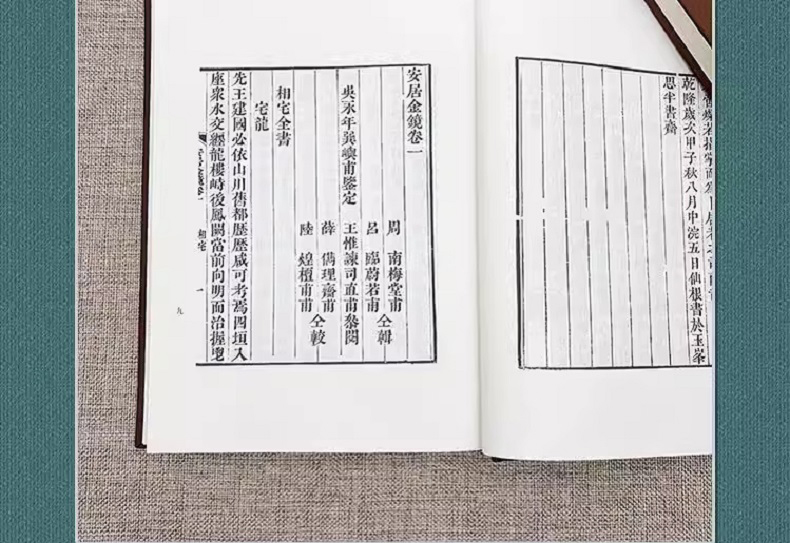 乾隆歲次甲子秋八月中浣五日仙根書於玉峯
思半書齋
安居金鏡卷一
周 南梅堂甫
仝輯
呂 臨蔚若甫
吳永年巽嶼甫鑒定
王惟諫司直甫叅閱
薛 儁理齋甫
仝較
陸 煌檀甫甫
相宅全書
宅龍
先王建國必依山川舊都歷歷咸可考焉四垣入
座衆水交經龍樓峙後鳳闕當前向明而治握
相宅
一
九